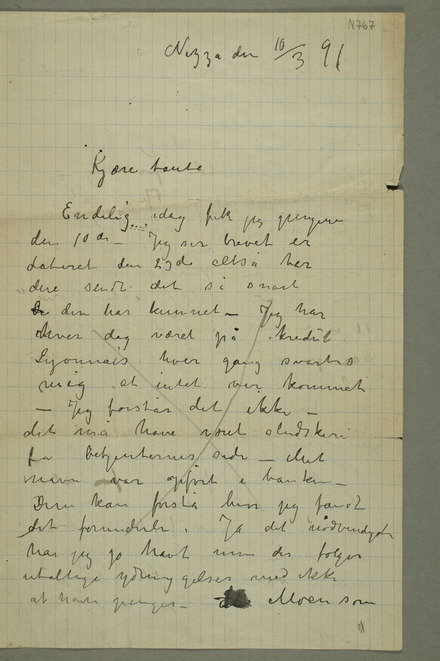 N767
Nizza den 10/3 91
Kjære tante
Endelig idag fik jeg pengene
den 10de – Jeg ser brevet er
dateret den 23de altså har
dere sendt det så snart
den har kunnet – Jeg har
hver dag været på kredit
Lyonnais hver gang svartes
mig at intet var kommet
– Jeg forstår det ikke –
det må have vært sludskeri
fra betjenternes side – Mit
navn var opført i banken –
Dere kan forstå hvor jeg fandt
det forunderli. Ja det nødvendigste
har jeg jo havt men der følger
utallige ydmygelser med ikke
at have penger – Moen som